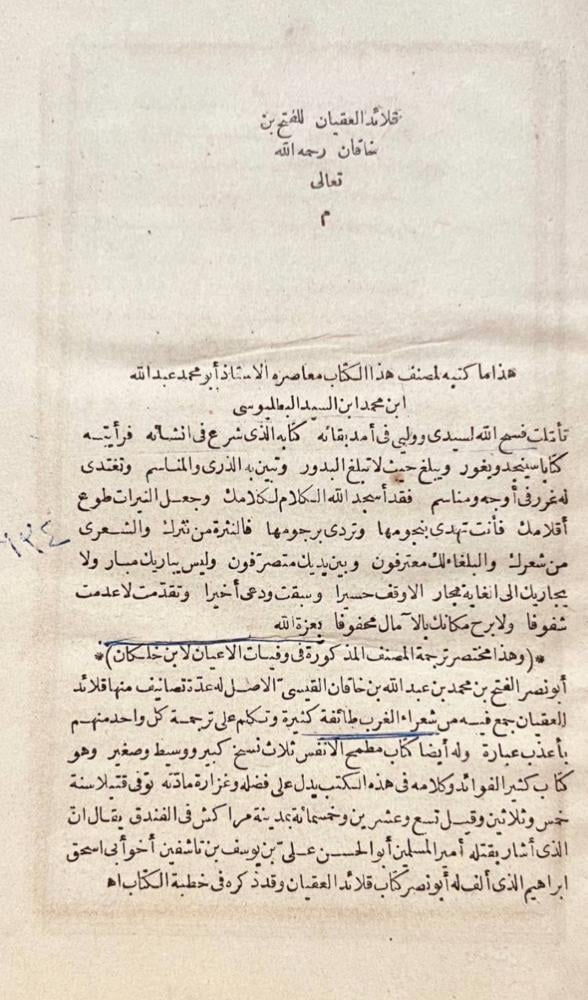 قلائد العقيان للفتح بن
خاقان رحمه الله
تعالى
م
هذا ما كتبه لمصنف هذا الكتاب معاصره الاستاذ أبو محمد عبد الله
ابن محمد ابن السيد البطليوسى
تأملت فسح الله لسيدى ووليى فى أمد بقائه كتابه الذى شرع فى انشائه فرأيته
كتابا سينجد ويغور ويبلغ حيث لا تبلغ البدور وتبين به الذرى والمناسم وتغتدى
له غرر فى أوجه ومناسم فقد أسجد الله الكلام لكلامك وجعل النيرات طوع
أقلامك فأنت تهدى بنجومها وتردى برجومها فالنثرة من نثرك والشعرى
من شعرك والبلغاء لك معترفون وبين يديك متصرفون وليس يباريك مبار ولا
يجاريك الى الغاية مجار الا وقف حسيرا وسبقت ودعى أخيرا وتقدمت لا عدمت
شفوفا ولا برح مكانك بالآمال محفوفا بعزة الله
*(وهذا مختصر ترجمة المصنف المذكورة فى وفيات الاعيان لابن خلكان)*
أبو نصر الفتح بن محمد بن عبد الله بن خاقان القيسى الاصل له عدة تصانيف منها قلائد
العقيان جمع فيه من شعراء الغرب طائفة كثيرة وتكلم على ترجمة كل واحد منهم
بأعذب عبارة وله أيضا كتاب مطمح الانفس ثلاث نسخ كبير ووسيط وصغير وهو
كتاب كثير الفوائد وكلامه فى هذه الكتب يدل على فضله وغزارة مادته توفى قتيلا سنة
خمس وثلاثين وقيل تسع وعشرين وخمسمائة بمدينة مراكش فى الفندق يقال ان
الذى أشار بقتله أمير المسلمين أبو الحسن على بن يوسف بن تاشفين أخو أبى اسحق
ابراهيم الذى ألف له أبو نصر كتاب قلائد العقيان وقد ذكره فى خطبة الكتاب اه